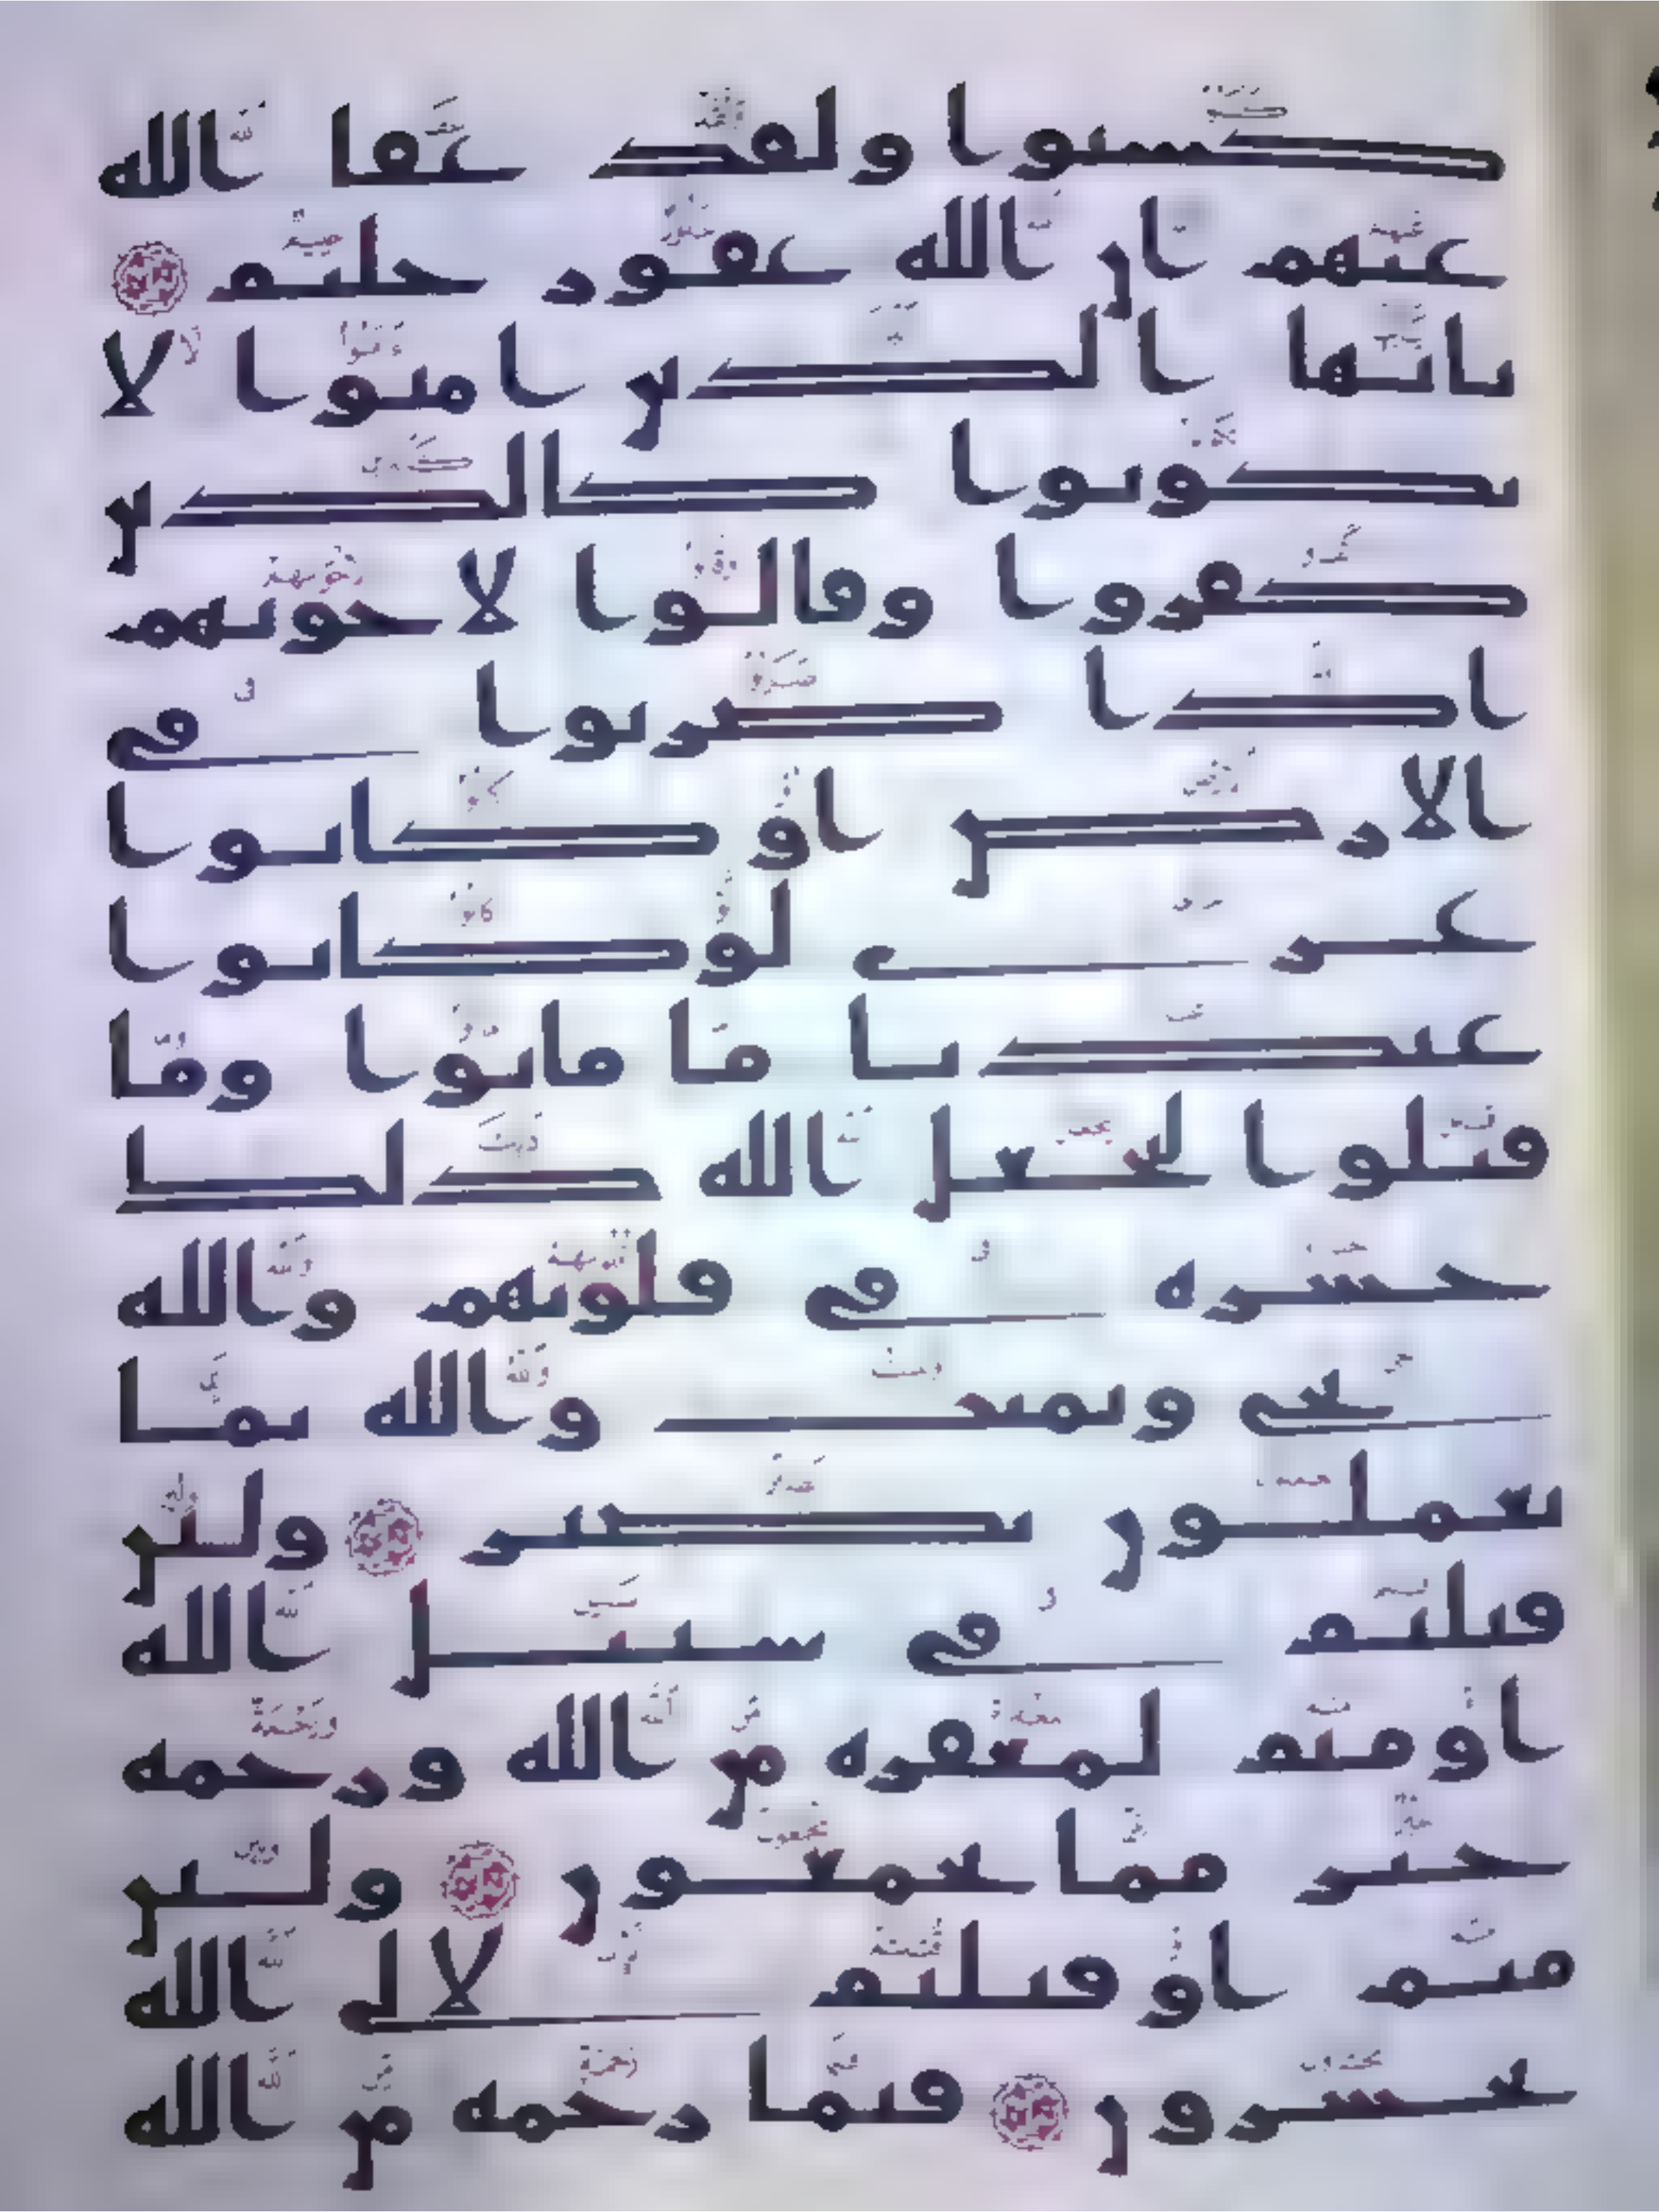 كسبوا ولقد عفا الله
عنهم ان الله غفور حليم
يايها الذين امنوا لا
تكونوا كالذين
كفروا وقالوا لاخونهم
اذا ضربوا في
الارض او كانوا
غزى لو كانوا
عندنا ما ماتوا وما
قتلوا ليجعل الله ذلك
حسرة في قلوبهم والله
يحي ويميت والله بما
تعملون بصير ولئن
قتلتم في سبيل الله
او متم لمغفرة من الله ورحمة
خير مما يجمعون ولئن
متم او قتلتم لالى الله
تحشرون فبما رحمة من الله